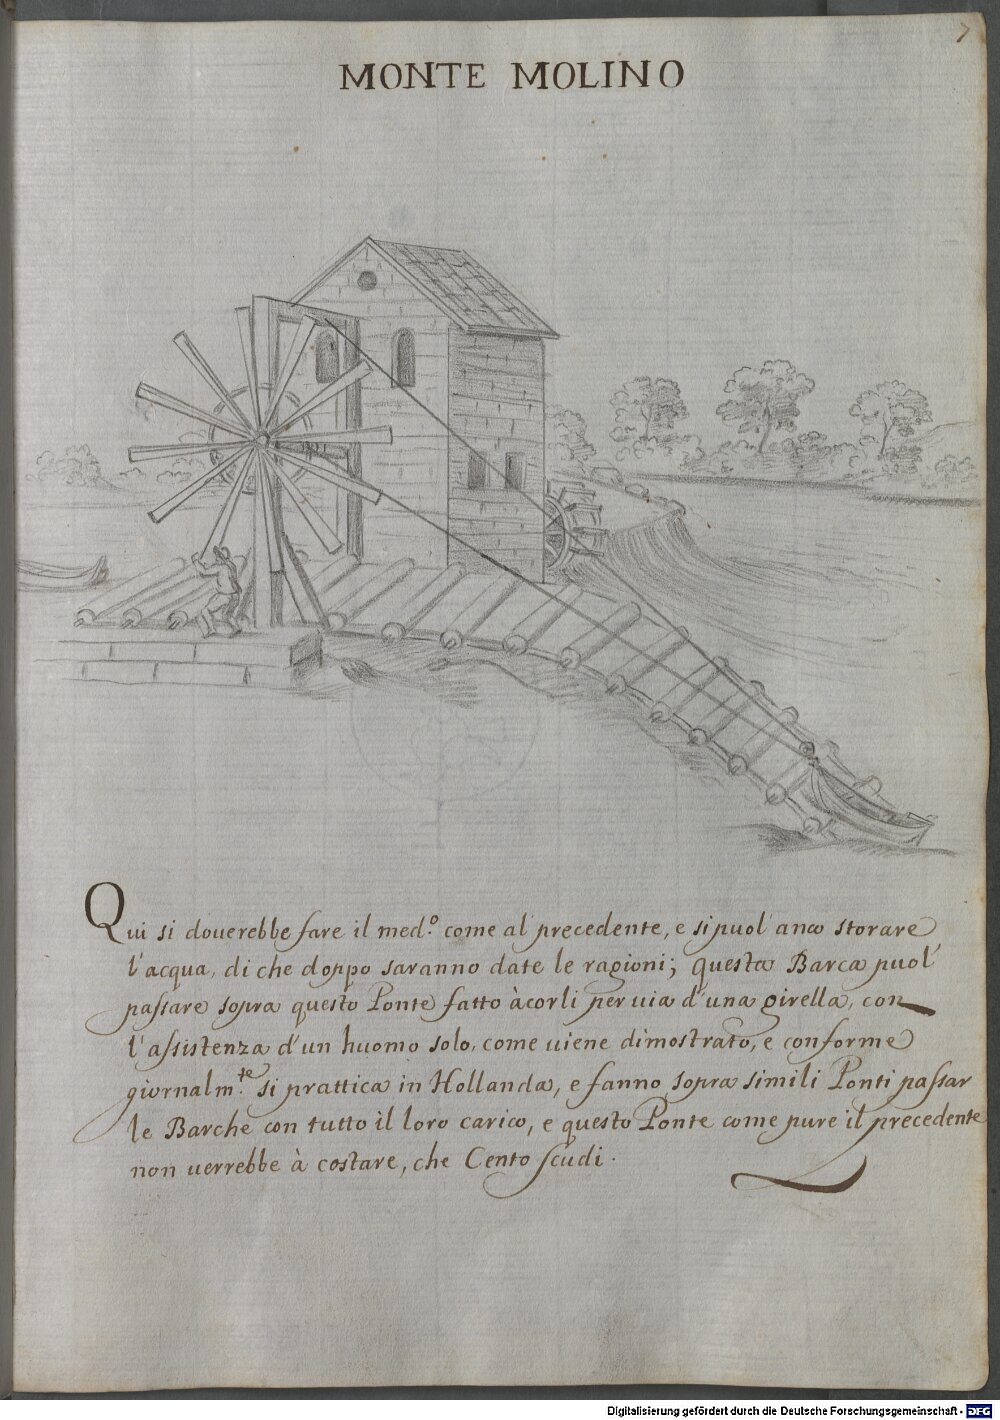 7
MONTE MOLINO
Qui si douerebbe fare il med.º come al precedente, e si puol anco storare
l'acqua, di che doppo saranno date le ragioni; questa Barca puol
passare sopra questo Ponte fatto à corli per uia d'una girella, con
l'assistenza d'un huomo solo, come uiene dimostrato, e conforme
giornalm.te si prattica in Hollanda, e fanno sopra simili Ponti passar
le Barche con tutto il loro carico, e questo Ponte come pure il precedente
non uerrebbe à costare, che Cento scudi.
Digitalisierung gefördert durch die Deutsche Forschungsgemeinschaft - DFG